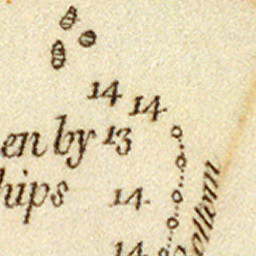 14 14
en by 13
hips 14
14
ottom